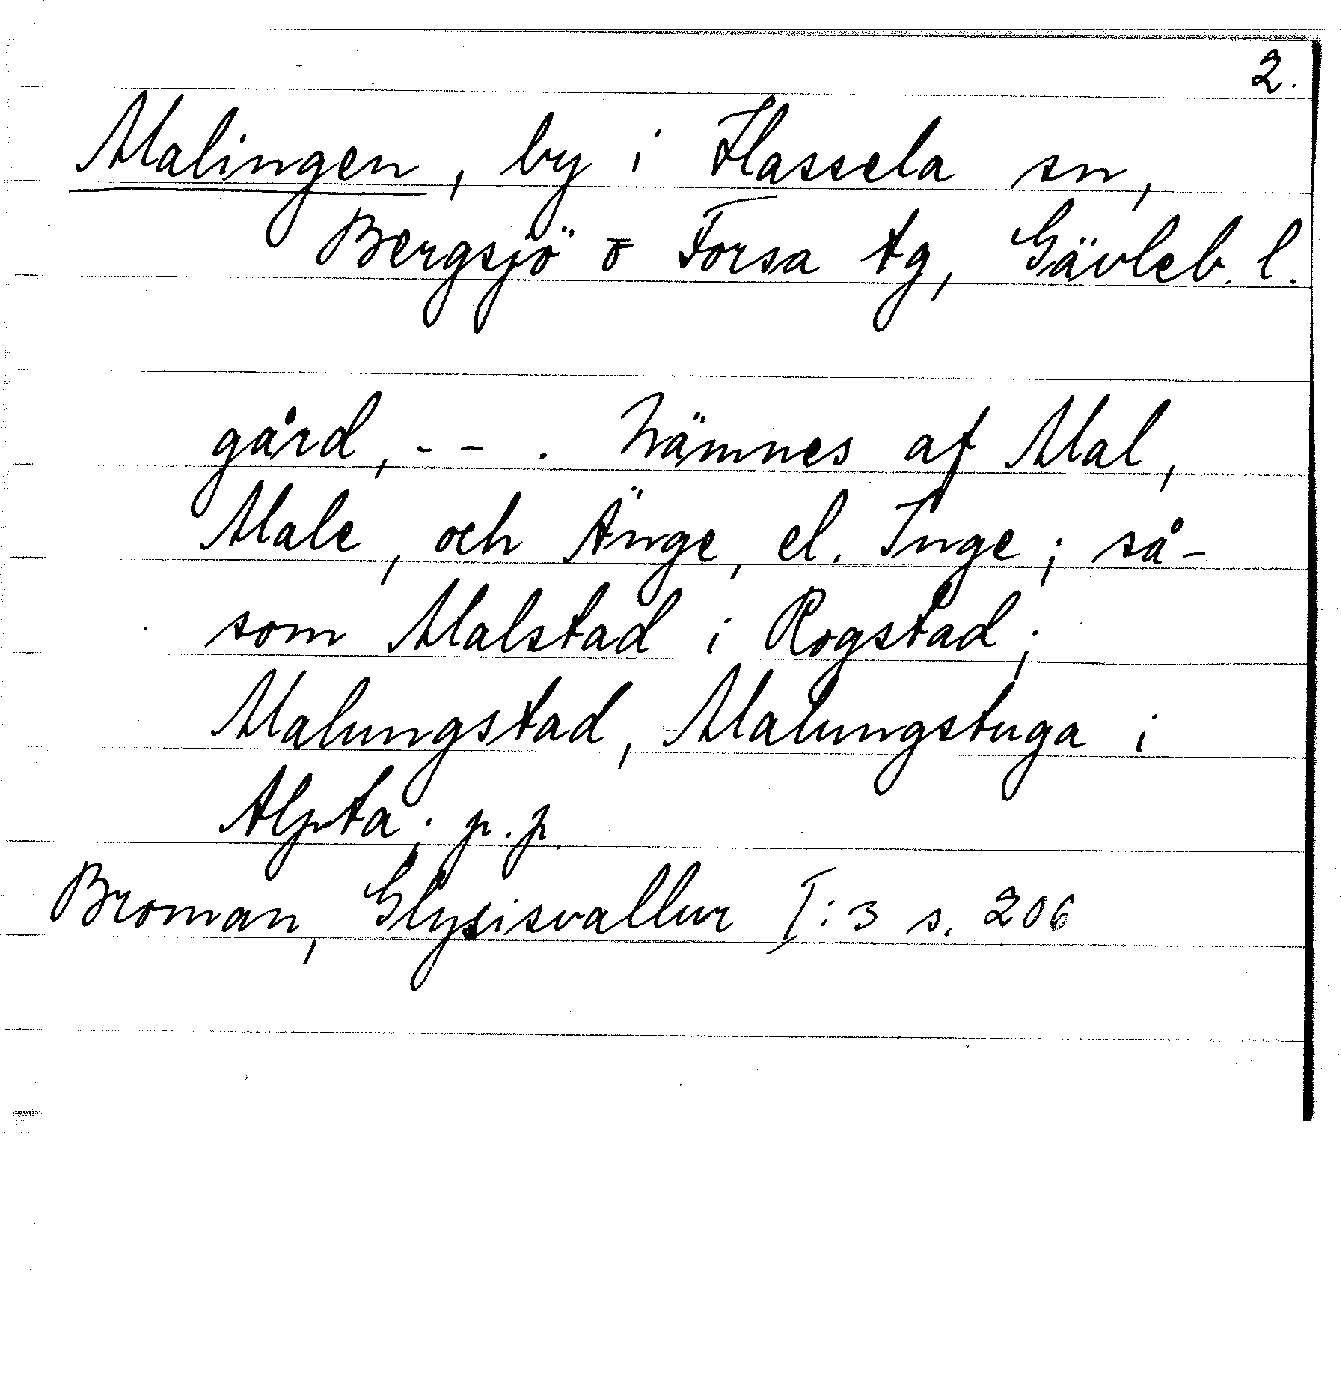 2.
Malingen, by i Hassela sn,
Bergsjö o Forsa tg, Gävleb. l.
gård, - - . Nämnes af Mal,
Male, och Änge, el. Inge; så-
som Malstad i Rogstad;
Malungstad, Malungstuga i
Alpta; p.p.
Broman, Glysisvallur I:3 s. 206